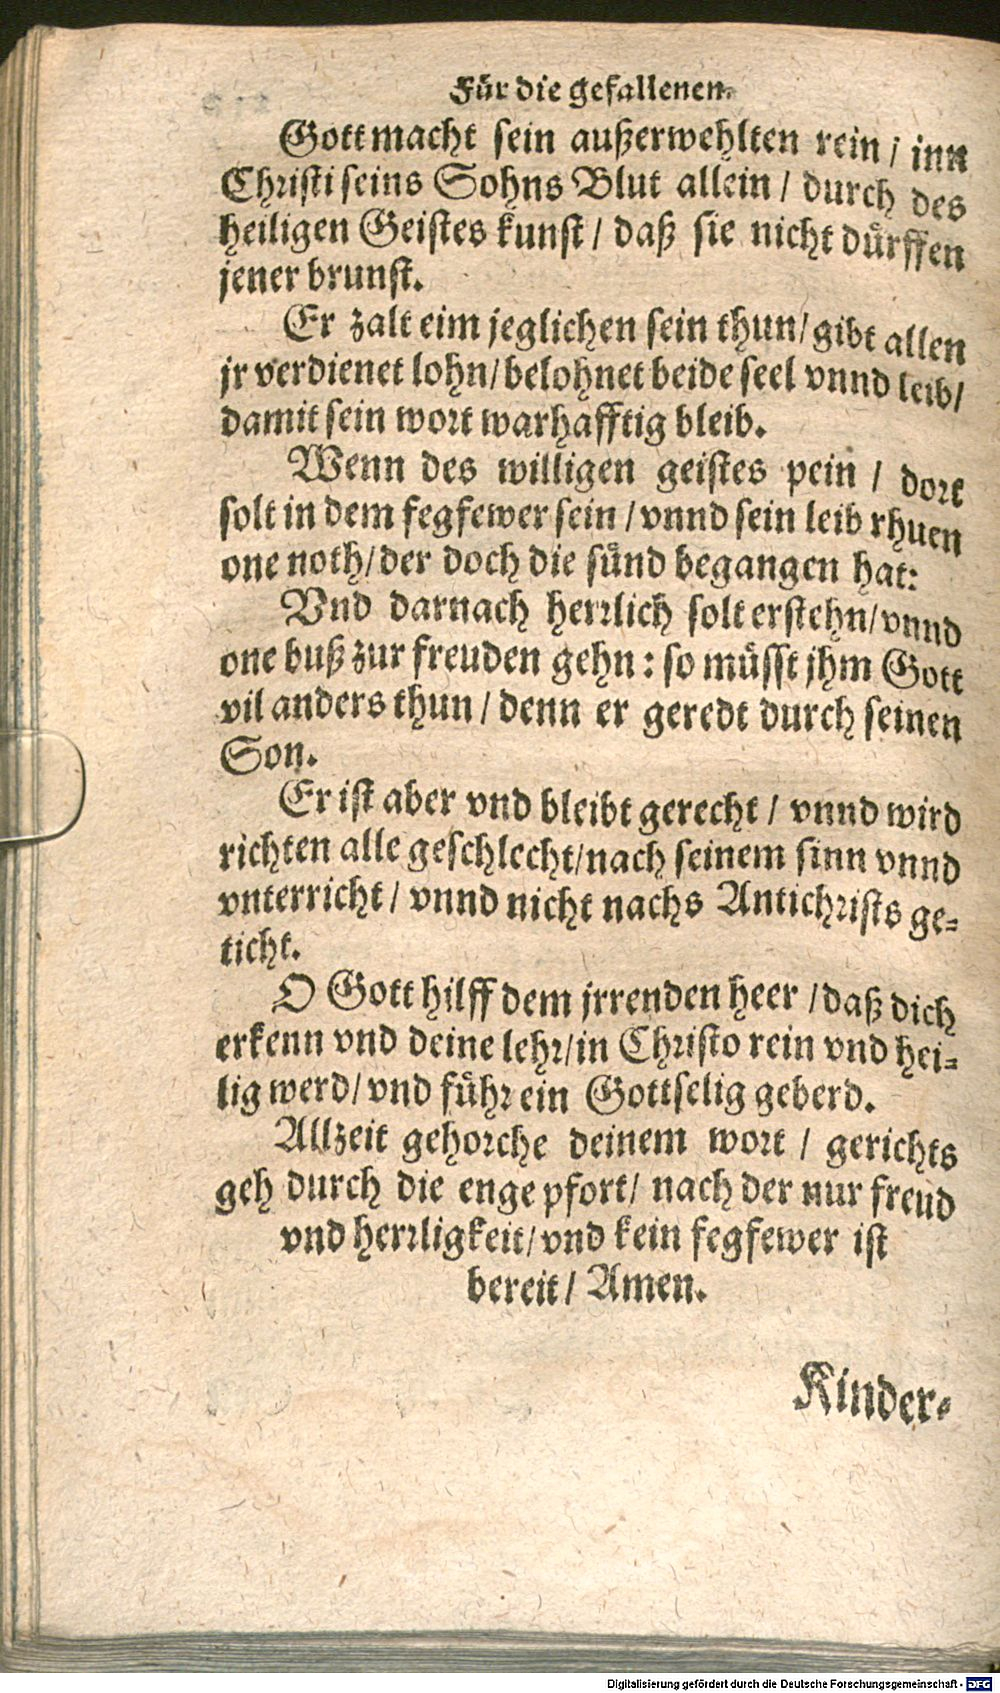 Für die gefallenen.
Gott macht sein außerwehlten rein / inn
Christi seins Sohns Blut allein / durch des
heiligen Geistes kunst / daß sie nicht dürffen
jener brunst.
Er zalt eim jeglichen sein thun / gibt allen
jr verdienet lohn / belohnet beide seel vnnd leib /
damit sein wort warhafftig bleib.
Wenn des willigen geistes pein / dort
solt in dem fegfewer sein / vnnd sein leib rhuen
one noth / der doch die sünd begangen hat:
Vnd darnach herrlich solt erstehn / vnnd
one buß zur freuden gehn : so müsst jhm Gott
vil anders thun / denn er geredt durch seinen
Son.
Er ist aber vnd bleibt gerecht / vnnd wird
richten alle geschlecht / nach seinem sinn vnnd
vnterricht / vnnd nicht nachs Antichrists ge-
ticht.
O Gott hilff dem jrrenden heer / daß dich
erkenn vnd deine lehr / in Christo rein vnd hei-
lig werd / vnd führ ein Gottselig geberd.
Allzeit gehorche deinem wort / gerichts
geh durch die enge pfort / nach der nur freud
vnd herrligkeit / vnd kein fegfewer ist
bereit / Amen.
Kinder-
Digitalisierung gefördert durch die Deutsche Forschungsgemeinschaft - DFG